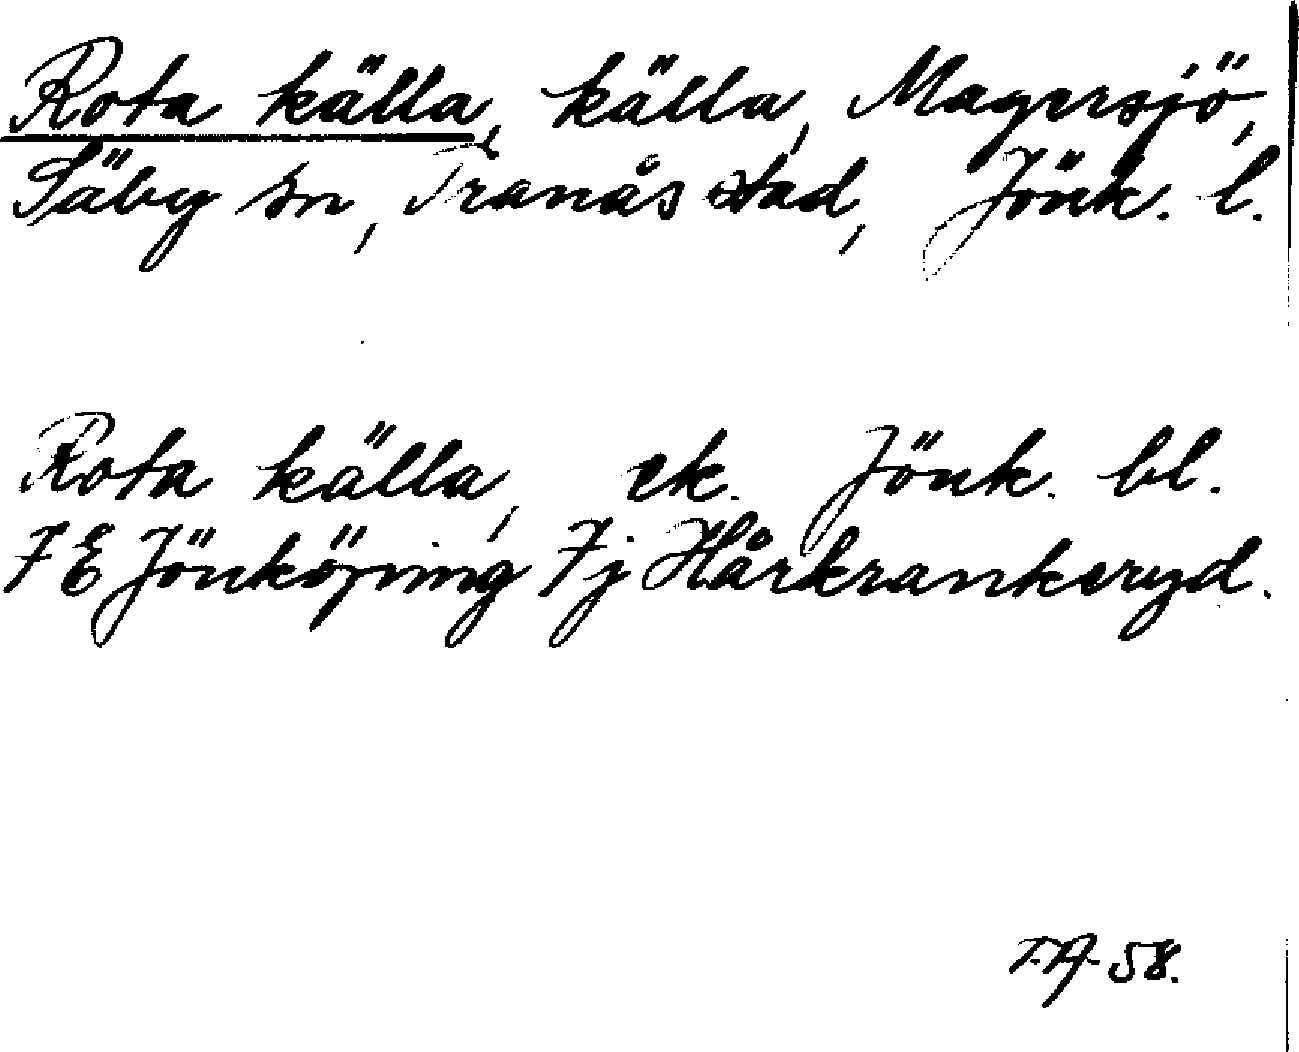 Rota källa, källa, Magersjö,
Säby sn, Tranås stad, Jönk. l.
Rota källa, ek. Jönk. bl.
7 E Jönköping 7j Hårkrankeryd.
T.A. 58.